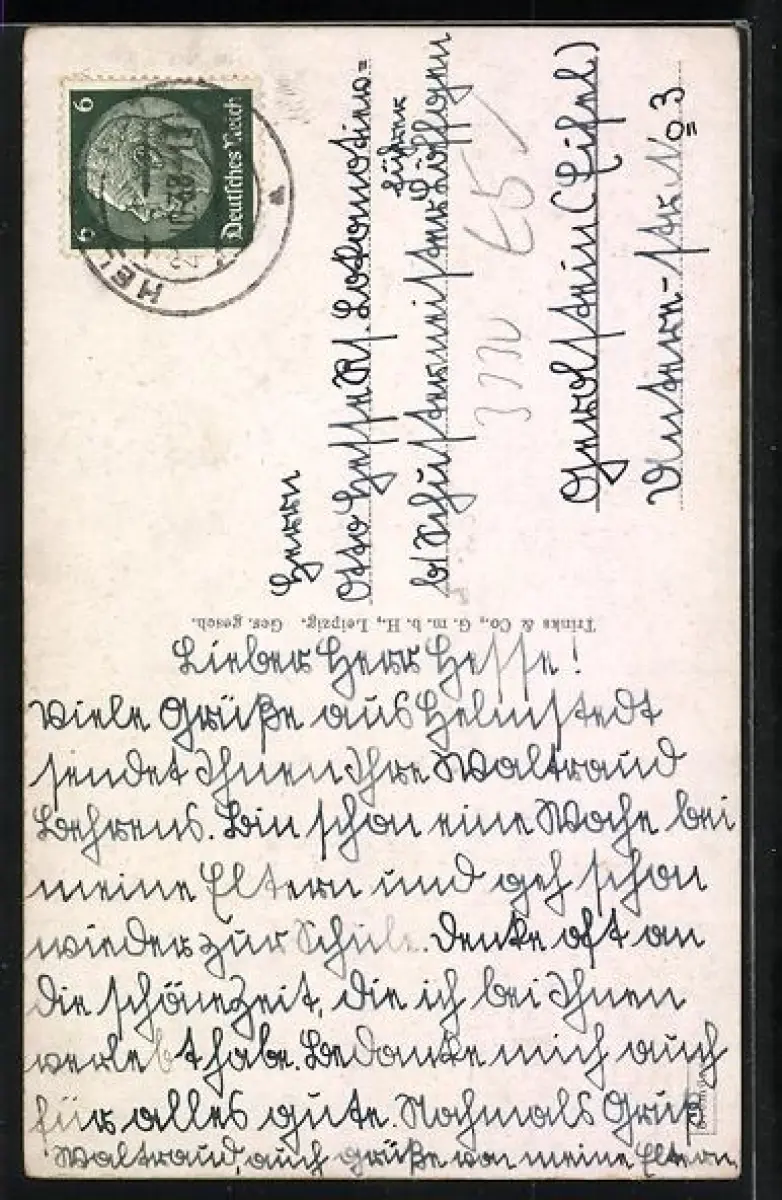 6
6
Deutsches Reich
HEL
Herrn
Otto Hesse Rs. Lokomotiv-
führer
b/ Schustermeister Löffgen
Gerolstein (Eifel)
Untere-str. No 3
Trinks & Co., G. m. b. H., Leipzig. Ges. gesch.
Lieber Herr Hesse!
Viele Grüße aus Helmstedt
sendet Ihnen Ihre Waltraud
Behrens. Bin schon eine Woche bei
meine Eltern und geh schon
wieder zur Schule. Denke oft an
die schöne Zeit, die ich bei Ihnen
verlebt habe. Bedanke mich auch
für alles gute. Nochmals Gruß
Waltraud, auch grüße von meine Eltern